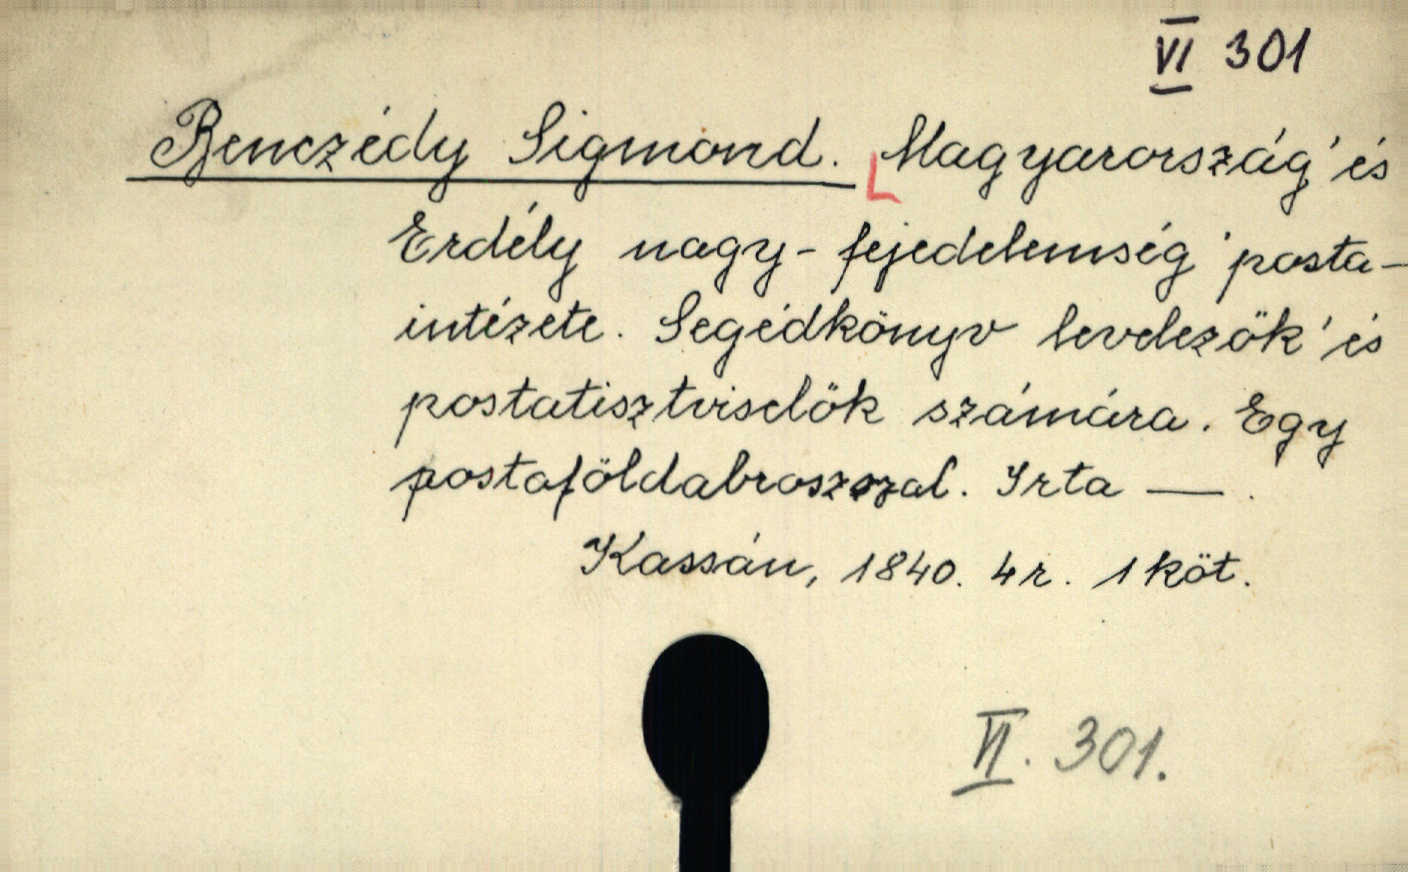 VI 301
Benczédy Sigmond. Magyarország' és
Erdély nagy-fejedelemség' posta-
intézete. Segédkönyv levelezők' és
postatisztviselők számára. Egy
postaföldabroszszal. Irta — .
Kassán, 1840. 4r. 1 köt.
VI. 301.